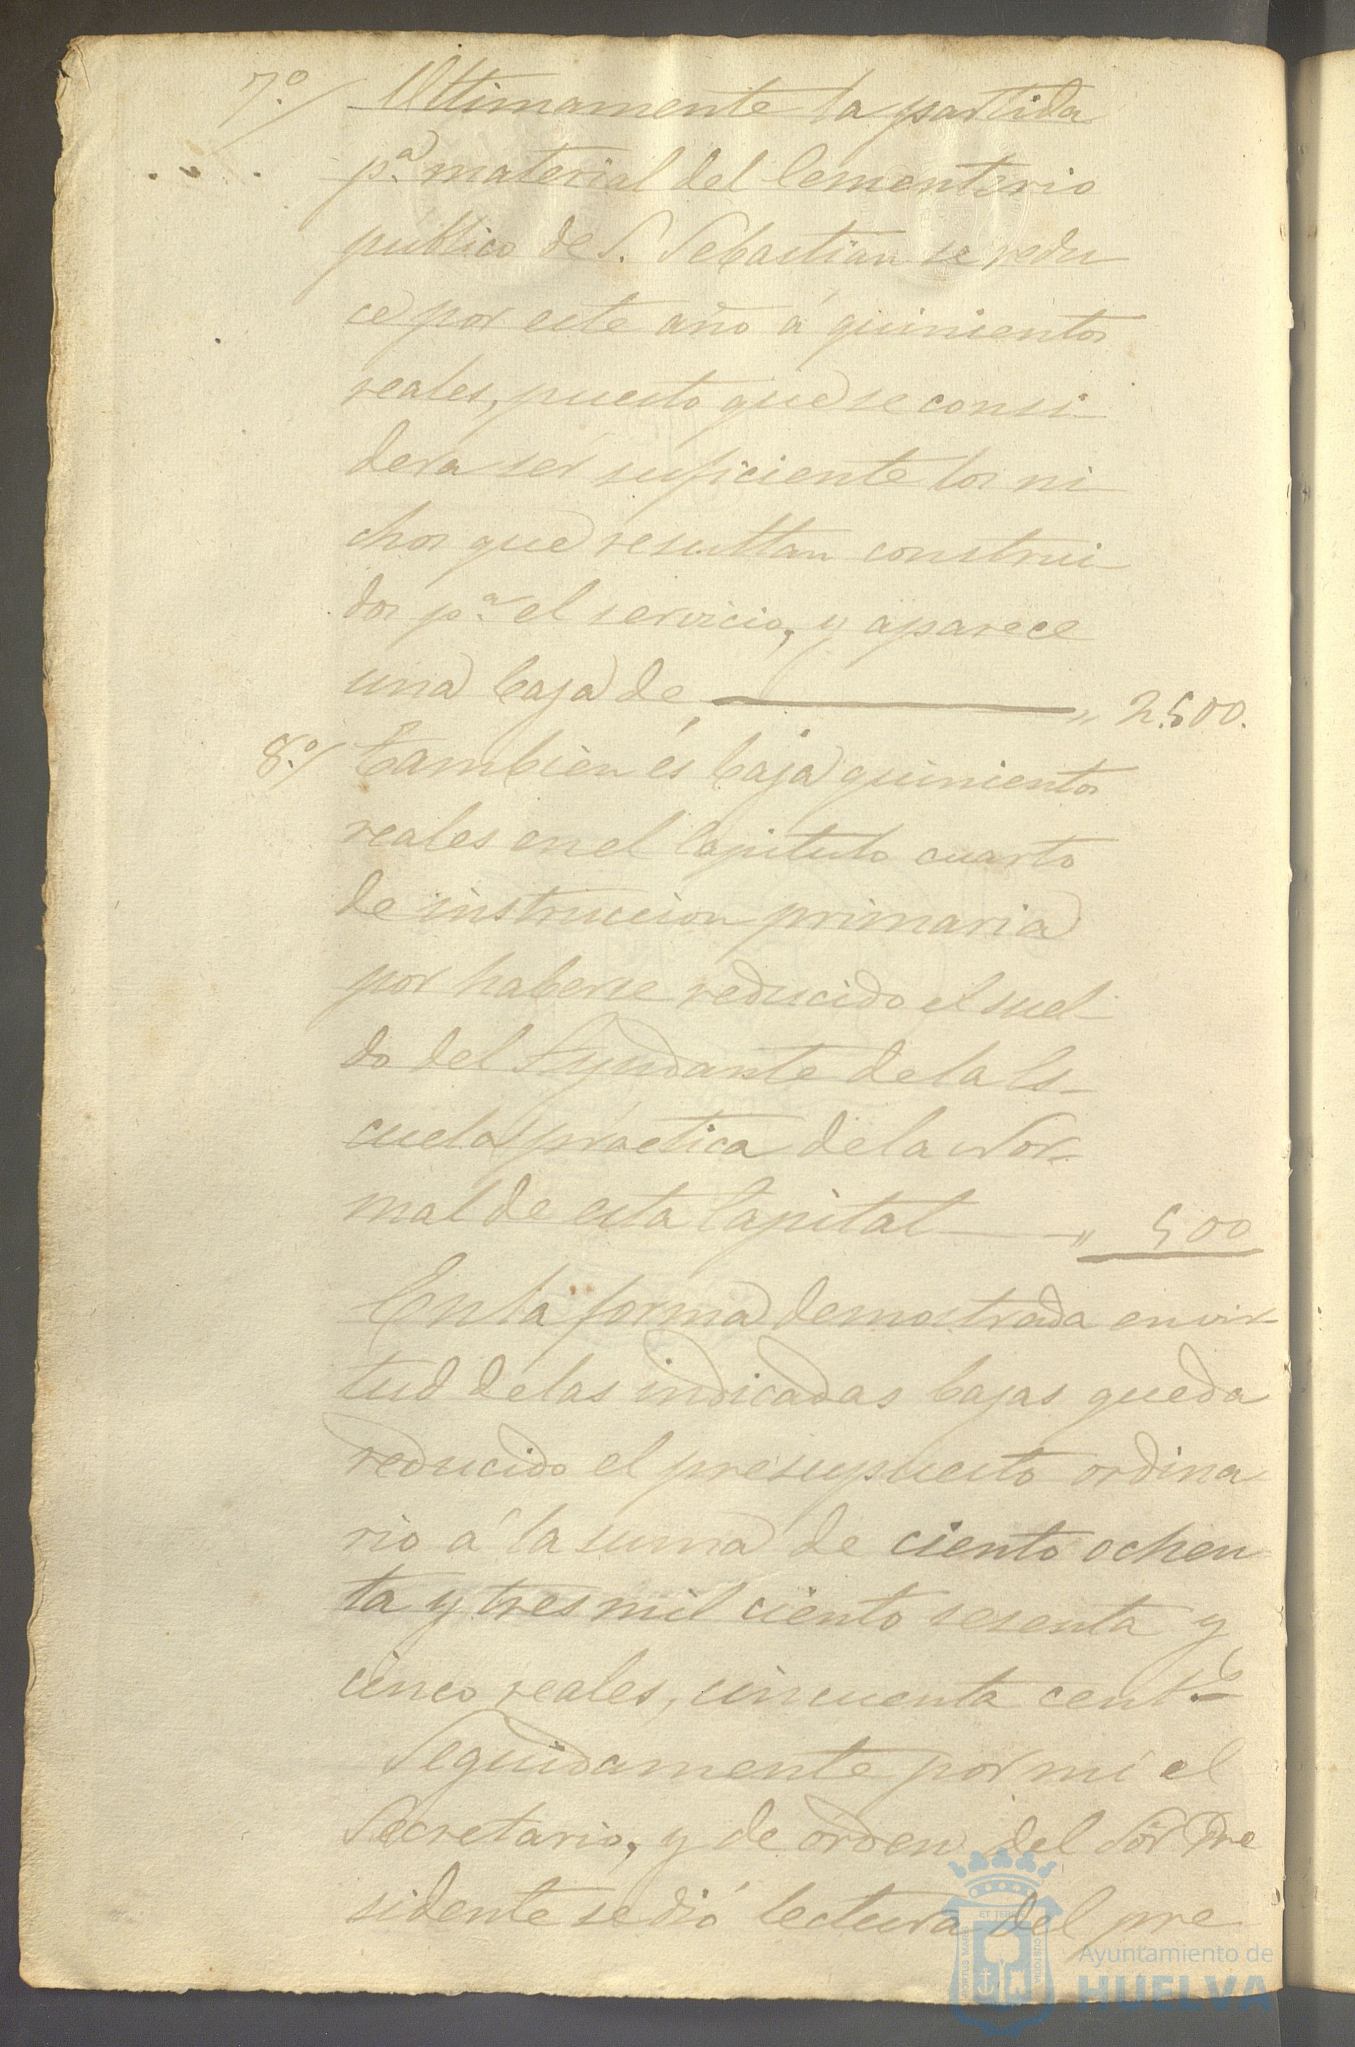 7.º/ Ultimamente la partida
p.ª material del Cementerio
público de S. Sebastian se redu
ce por este año á quinientos
reales, puesto que se consi
dera ser suficiente los ni
chos que resultan construi
dos p.ª el servicio, y aparece
una baja de " 2.500.
8.º/ Tambien és baja quinientos
reales en el Capitulo cuarto
de instruccion primaria
por haberse reducido el suel
do del Ayudante de la Es
cuela práctica de la Nor
mal de esta Capital " 500
En la forma demostrada en vir
tud de las indicadas bajas queda
reducido el presupuesto ordina
rio á la suma de ciento ochen
ta y tres mil ciento sesenta y
cinco reales, cincuenta cent.s
Seguidamente por mi el
Secretario, y de orden del Sór Pre
sidente se dió lectura del pre
Ayuntamiento de
HUELVA